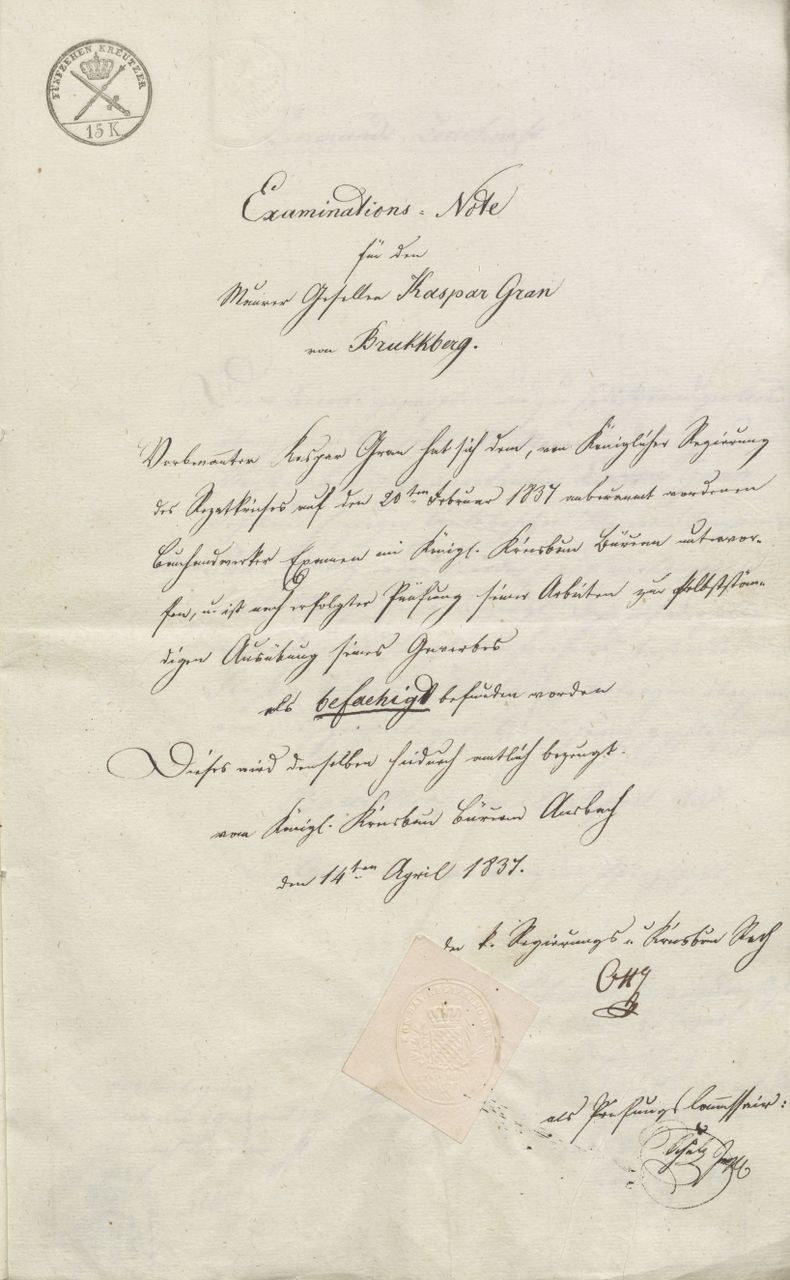 FÜNFZEHEN KREUTZER
15 K
Examinations-Note
für den
Maurer Gesellen Kaspar Gran
von Brukkberg.
Vorbenannter Kaspar Gran hat sich dem, von Königlicher Regierung
des Rezatkreises auf den 20ten Februar 1837 anberaumt wordenen
Bauhandwerker Examen im Königl. Kreisbau Büreau unterwor-
fen, u. ist nach erfolgter Prüfung seiner Arbeiten zur selbststän-
digen Ausübung seines Gewerbes
als befaehigt befunden worden
Dieses wird denselben hiedurch amtlich bezeugt.
vom Königl. Kreisbau Büreau Ansbach
den 14ten April 1837.
der k. Regierungs u. Kreisbau Rath
als Prüfungs Commissair: